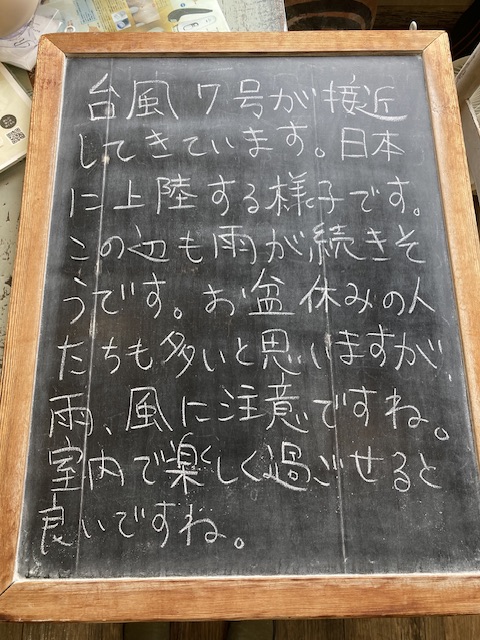 台風7号が接近
してきています。日本
に上陸する様子です。
この辺も雨が続きそ
うです。お盆休みの人
たちも多いと思いますが、
雨、風に注意ですね。
室内で楽しく過ごせると
良いですね。